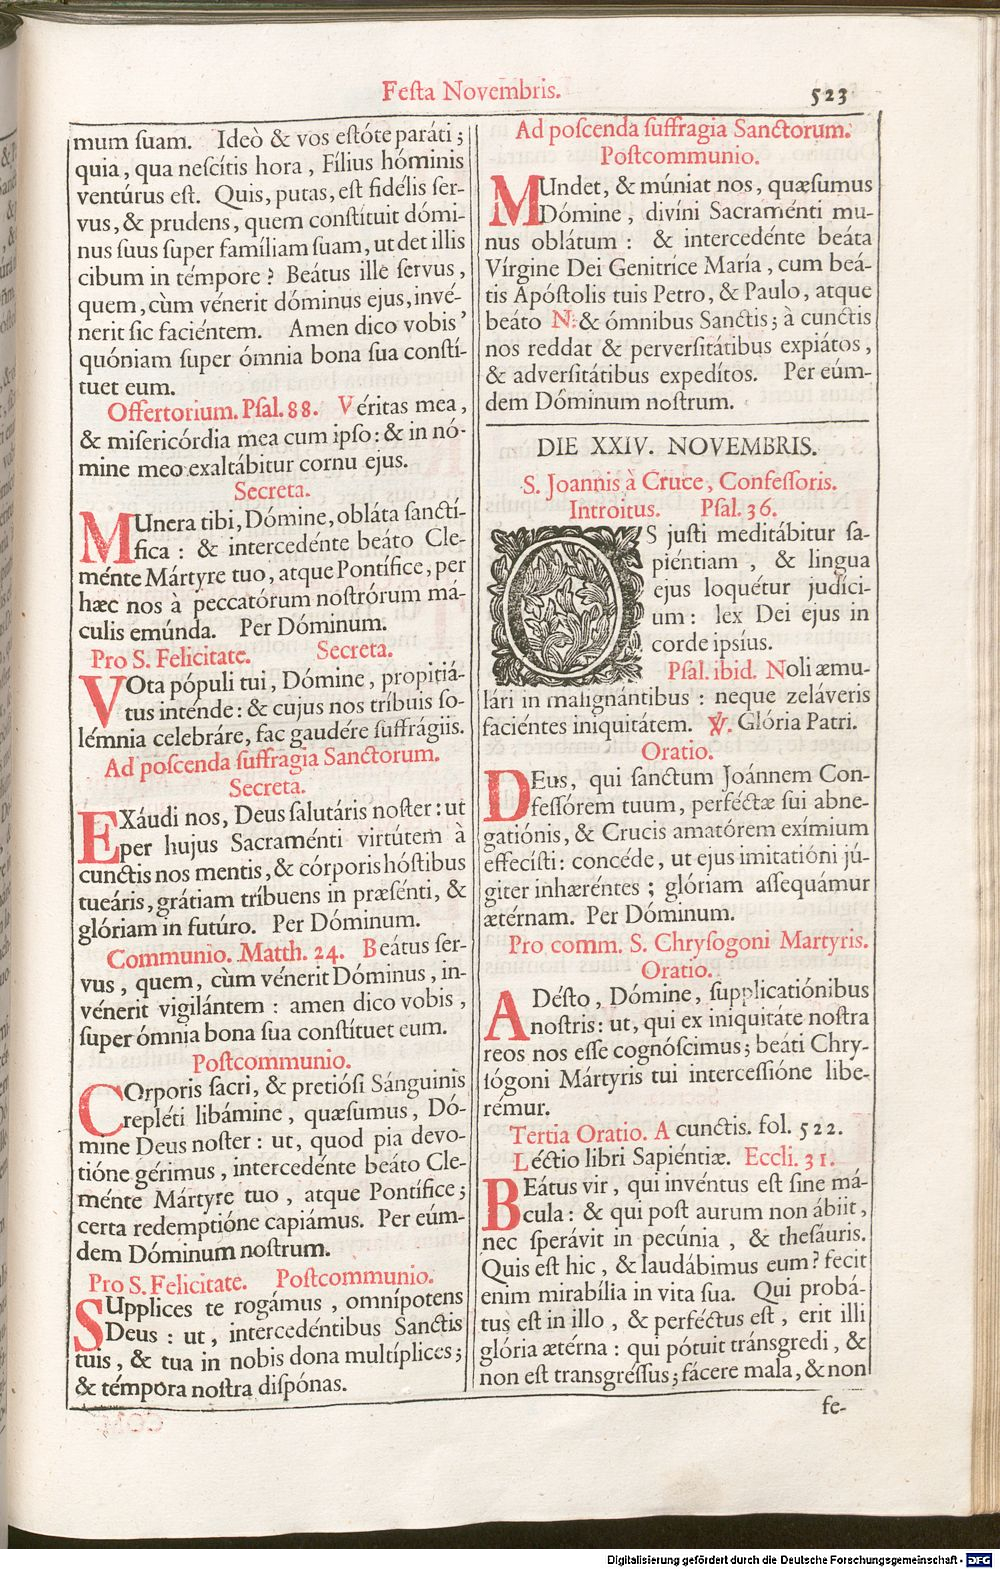 Festa Novembris. 523
mum suam. Ideò & vos estóte paráti;
quia, qua nescítis hora, Fílius hóminis
ventúrus est. Quis, putas, est fidélis ser-
vus, & prudens, quem constítuit dómi-
nus suus super famíliam suam, ut det illis
cibum in témpore? Beátus ille servus,
quem, cùm vénerit dóminus ejus, invé-
nerit sic faciéntem. Amen dico vobis,
quóniam super ómnia bona sua constí-
tuet eum.
Offertorium. Psal. 88. Véritas mea,
& misericórdia mea cum ipso: & in nó-
mine meo exaltábitur cornu ejus.
Secreta.
MUnera tibi, Dómine, obláta sanctí-
fica: & intercedénte beáto Cle-
ménte Mártyre tuo, atque Pontífice, per
hæc nos à peccatórum nostrórum má-
culis emúnda. Per Dóminum.
Pro S. Felicitate. Secreta.
VOta pópuli tui, Dómine, propitiá-
tus inténde: & cujus nos tríbuis so-
lémnia celebráre, fac gaudére suffrágiis.
Ad poscenda suffragia Sanctorum.
Secreta.
EXáudi nos, Deus salutáris noster: ut
per hujus Sacraménti virtútem à
cunctis nos mentis, & córporis hóstibus
tueáris, grátiam tríbuens in præsénti, &
glóriam in futúro. Per Dóminum.
Communio. Matth. 24. Beátus ser-
vus, quem, cùm vénerit Dóminus, in-
vénerit vigilántem: amen dico vobis,
super ómnia bona sua constítuet eum.
Postcommunio.
COrporis sacri, & pretiósi Sánguinis
repléti libámine, quæsumus, Dó-
mine Deus noster: ut, quod pia devo-
tióne gérimus, intercedénte beáto Cle-
ménte Mártyre tuo, atque Pontífice;
certa redemptióne capiámus. Per eúm-
dem Dóminum nostrum.
Pro S. Felicitate. Postcommunio.
SUpplices te rogámus, omnípotens
Deus: ut, intercedéntibus Sanctis
tuis, & tua in nobis dona multíplices;
& témpora nostra dispónas.
Ad poscenda suffragia Sanctorum.
Postcommunio.
MUndet, & múniat nos, quæsumus
Dómine, divíni Sacraménti mu-
nus oblátum: & intercedénte beáta
Vírgine Dei Genitríce María, cum beá-
tis Apóstolis tuis Petro, & Paulo, atque
beáto N. & ómnibus Sanctis; à cunctis
nos reddat & perversitátibus expiátos,
& adversitátibus expedítos. Per eúm-
dem Dóminum nostrum.
DIE XXIV. NOVEMBRIS.
S. Joannis à Cruce, Confessoris.
Introitus. Psal. 36.
OS justi meditábitur sa-
piéntiam, & lingua
ejus loquétur judíci-
um: lex Dei ejus in
corde ipsíus.
Psal. ibid. Noli æmu-
lári in malignántibus: neque zeláveris
faciéntes iniquitátem. ℣. Glória Patri.
Oratio.
DEus, qui sanctum Joánnem Con-
fessórem tuum, perféctæ sui abne-
gatiónis, & Crucis amatórem exímium
effecísti: concéde, ut ejus imitatióni jú-
giter inhæréntes; glóriam assequámur
ætérnam. Per Dóminum.
Pro comm. S. Chrysogoni Martyris.
Oratio.
ADésto, Dómine, supplicatiónibus
nostris: ut, qui ex iniquitáte nostra
reos nos esse cognóscimus; beáti Chry-
sógoni Mártyris tui intercessióne libe-
rémur.
Tertia Oratio. A cunctis. fol. 522.
Léctio libri Sapiéntiæ. Eccli. 31.
BEátus vir, qui invéntus est sine má-
cula: & qui post aurum non ábiit,
nec sperávit in pecúnia, & thesáuris.
Quis est hic, & laudábimus eum? fecit
enim mirabília in vita sua. Qui probá-
tus est in illo, & perféctus est, erit illi
glória ætérna: qui pótuit tránsgredi, &
non est transgréssus; fácere mala, & non
fe-
Digitalisierung gefördert durch die Deutsche Forschungsgemeinschaft - DFG